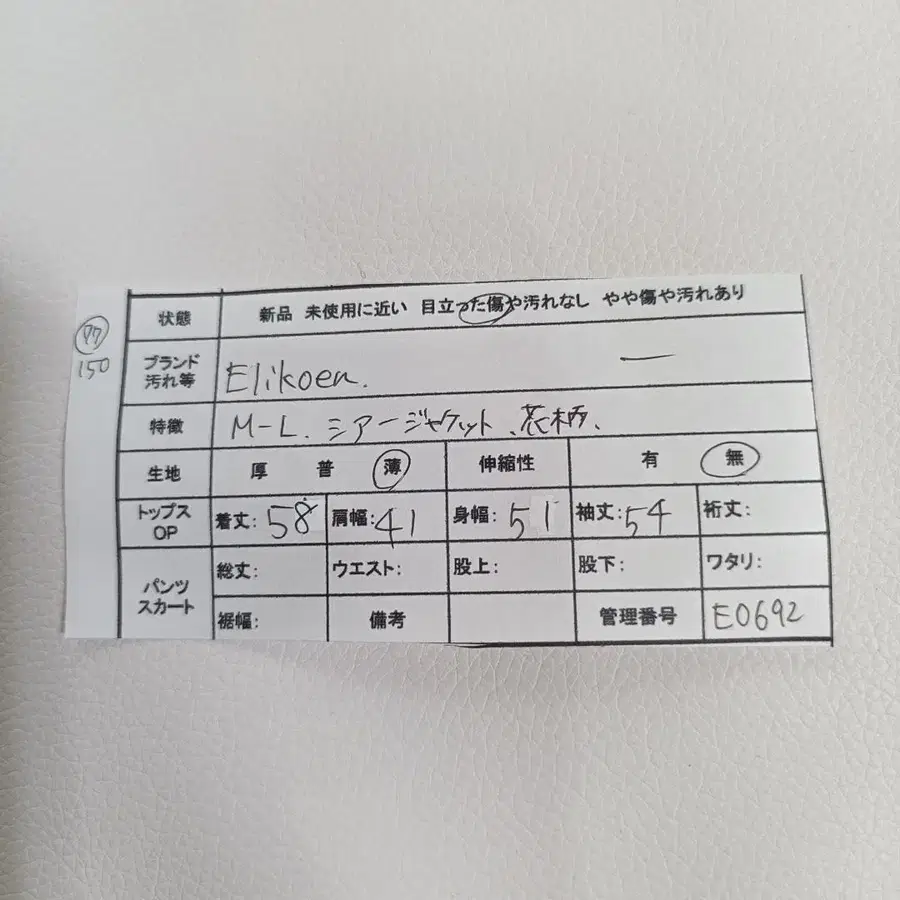 77
150
状態 新品 未使用に近い 目立った傷や汚れなし やや傷や汚れあり
ブランド
汚れ等 Elikoen. ー
特徴 M-L. シアージャケット、花柄、
生地 厚 普 薄 伸縮性 有 無
トップス
OP 着丈:58 肩幅:41 身幅:51 袖丈:54 裄丈:
パンツ
スカート
総丈: ウエスト: 股上: 股下: ワタリ:
裾幅: 備考 管理番号 E0692